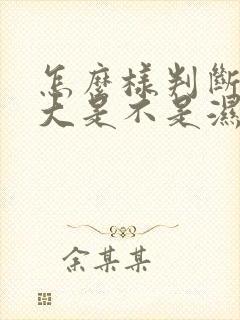 怎麼樣判斷
大是不是濕
余某某